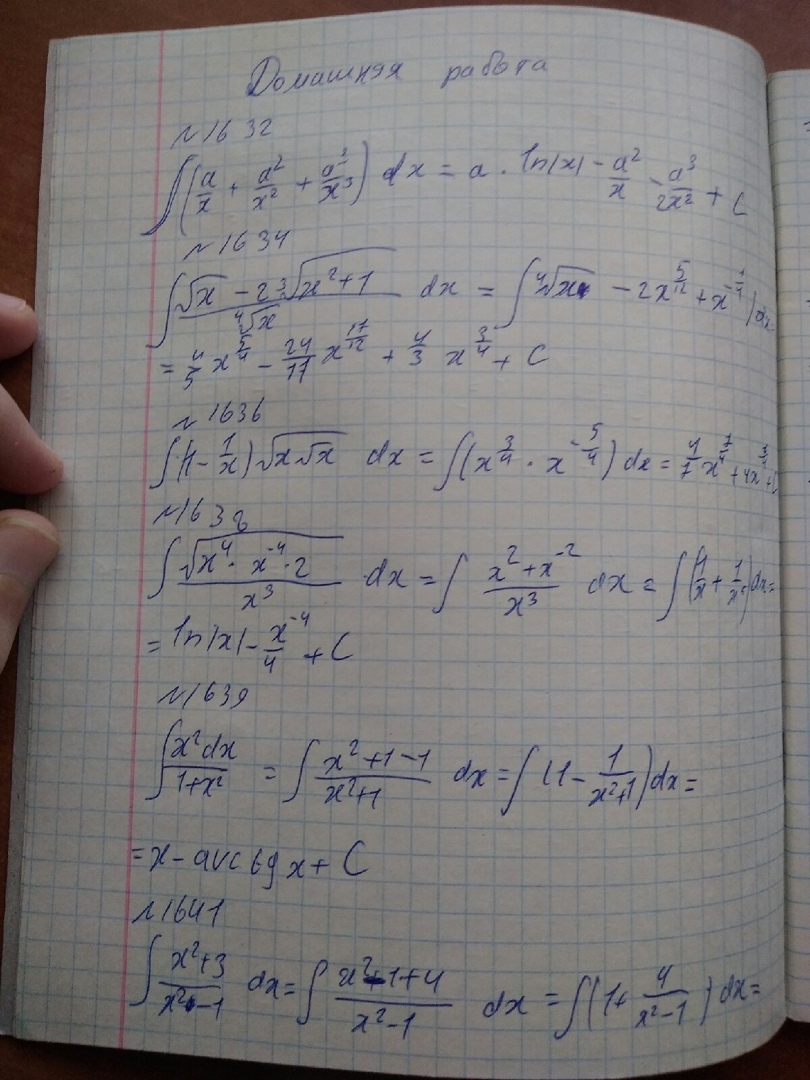 Домашняя работа
№1632
∫(a/x + a²/x² + a³/x³) dx = a · ln|x| - a²/x - a³/2x² + C
№1634
∫ (√x - 2 ³√x²+1)/⁴√x dx = ∫ ⁴√x - 2x^(5/12) + x^(-1/4)) dx =
= 4/5 x^(5/4) - 24/17 x^(17/12) + 4/3 x^(3/4) + C
№1636
∫(1 - 1/x) √x√x dx = ∫(x^(3/4) · x^(-5/4)) dx = 4/7 x^(7/4) + 4x^(-1/4) + C
№1638
∫ √x⁴ · x⁻⁴ · 2/x³ dx = ∫ (x² + x⁻²)/x³ dx = ∫(1/x + 1/x⁵) dx =
= ln|x| - x⁻⁴/4 + C
№1639
∫ x²dx/(1+x²) = ∫ (x²+1-1)/(x²+1) dx = ∫(1 - 1/(x²+1)) dx =
= x - arctg x + C
№1641
∫ (x²+3)/(x²-1) dx = ∫ (x²-1+4)/(x²-1) dx = ∫(1 + 4/(x²-1)) dx =